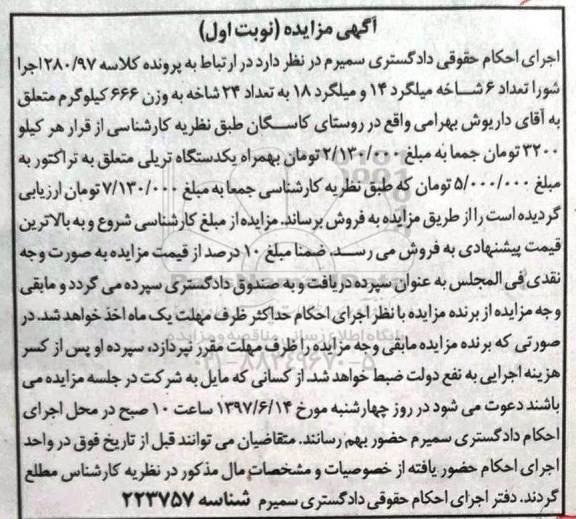 آگهی مزایده (نوبت اول)
اجرای احکام حقوقی دادگستری سمیرم در نظر دارد در ارتباط به پرونده کلاسه ۲۸۰/۹۷ اجرا
شورا تعداد ۶ شاخه میلگرد ۱۴ و میلگرد ۱۸ به تعداد ۲۴ شاخه به وزن ۶۶۶ کیلوگرم متعلق
به آقای داریوش بهرامی واقع در روستای کاسگان طبق نظریه کارشناسی از قرار هر کیلو
۳۲۰۰ تومان جمعا به مبلغ ۲/۱۳۰/۰۰۰ تومان بهمراه یکدستگاه تریلی متعلق به تراکتور به
مبلغ ۵/۰۰۰/۰۰۰ تومان که طبق نظریه کارشناسی جمعا به مبلغ ۷/۱۳۰/۰۰۰ تومان ارزیابی
گردیده است را از طریق مزایده به فروش برساند. مزایده از مبلغ کارشناسی شروع و به بالاترین
قیمت پیشنهادی به فروش می رسد. ضمنا مبلغ ۱۰ درصد از قیمت مزایده به صورت وجه
نقدی فی المجلس به عنوان سپرده دریافت و به صندوق دادگستری سپرده می گردد و مابقی
وجه مزایده از برنده مزایده با نظر اجرای احکام حداکثر ظرف مهلت یک ماه اخذ خواهد شد. در
صورتی که برنده مزایده مابقی وجه مزایده را ظرف مهلت مقرر نپردازد، سپرده او پس از کسر
هزینه اجرایی به نفع دولت ضبط خواهد شد. از کسانی که مایل به شرکت در جلسه مزایده می
باشند دعوت می شود در روز چهارشنبه مورخ ۱۳۹۷/۶/۱۴ ساعت ۱۰ صبح در محل اجرای
احکام دادگستری سمیرم حضور بهم رسانند. متقاضیان می توانند قبل از تاریخ فوق در واحد
اجرای احکام حضور یافته از خصوصیات و مشخصات مال مذکور در نظریه کارشناس مطلع
گردند. دفتر اجرای احکام حقوقی دادگستری سمیرم شناسه ۲۲۳۷۵۷